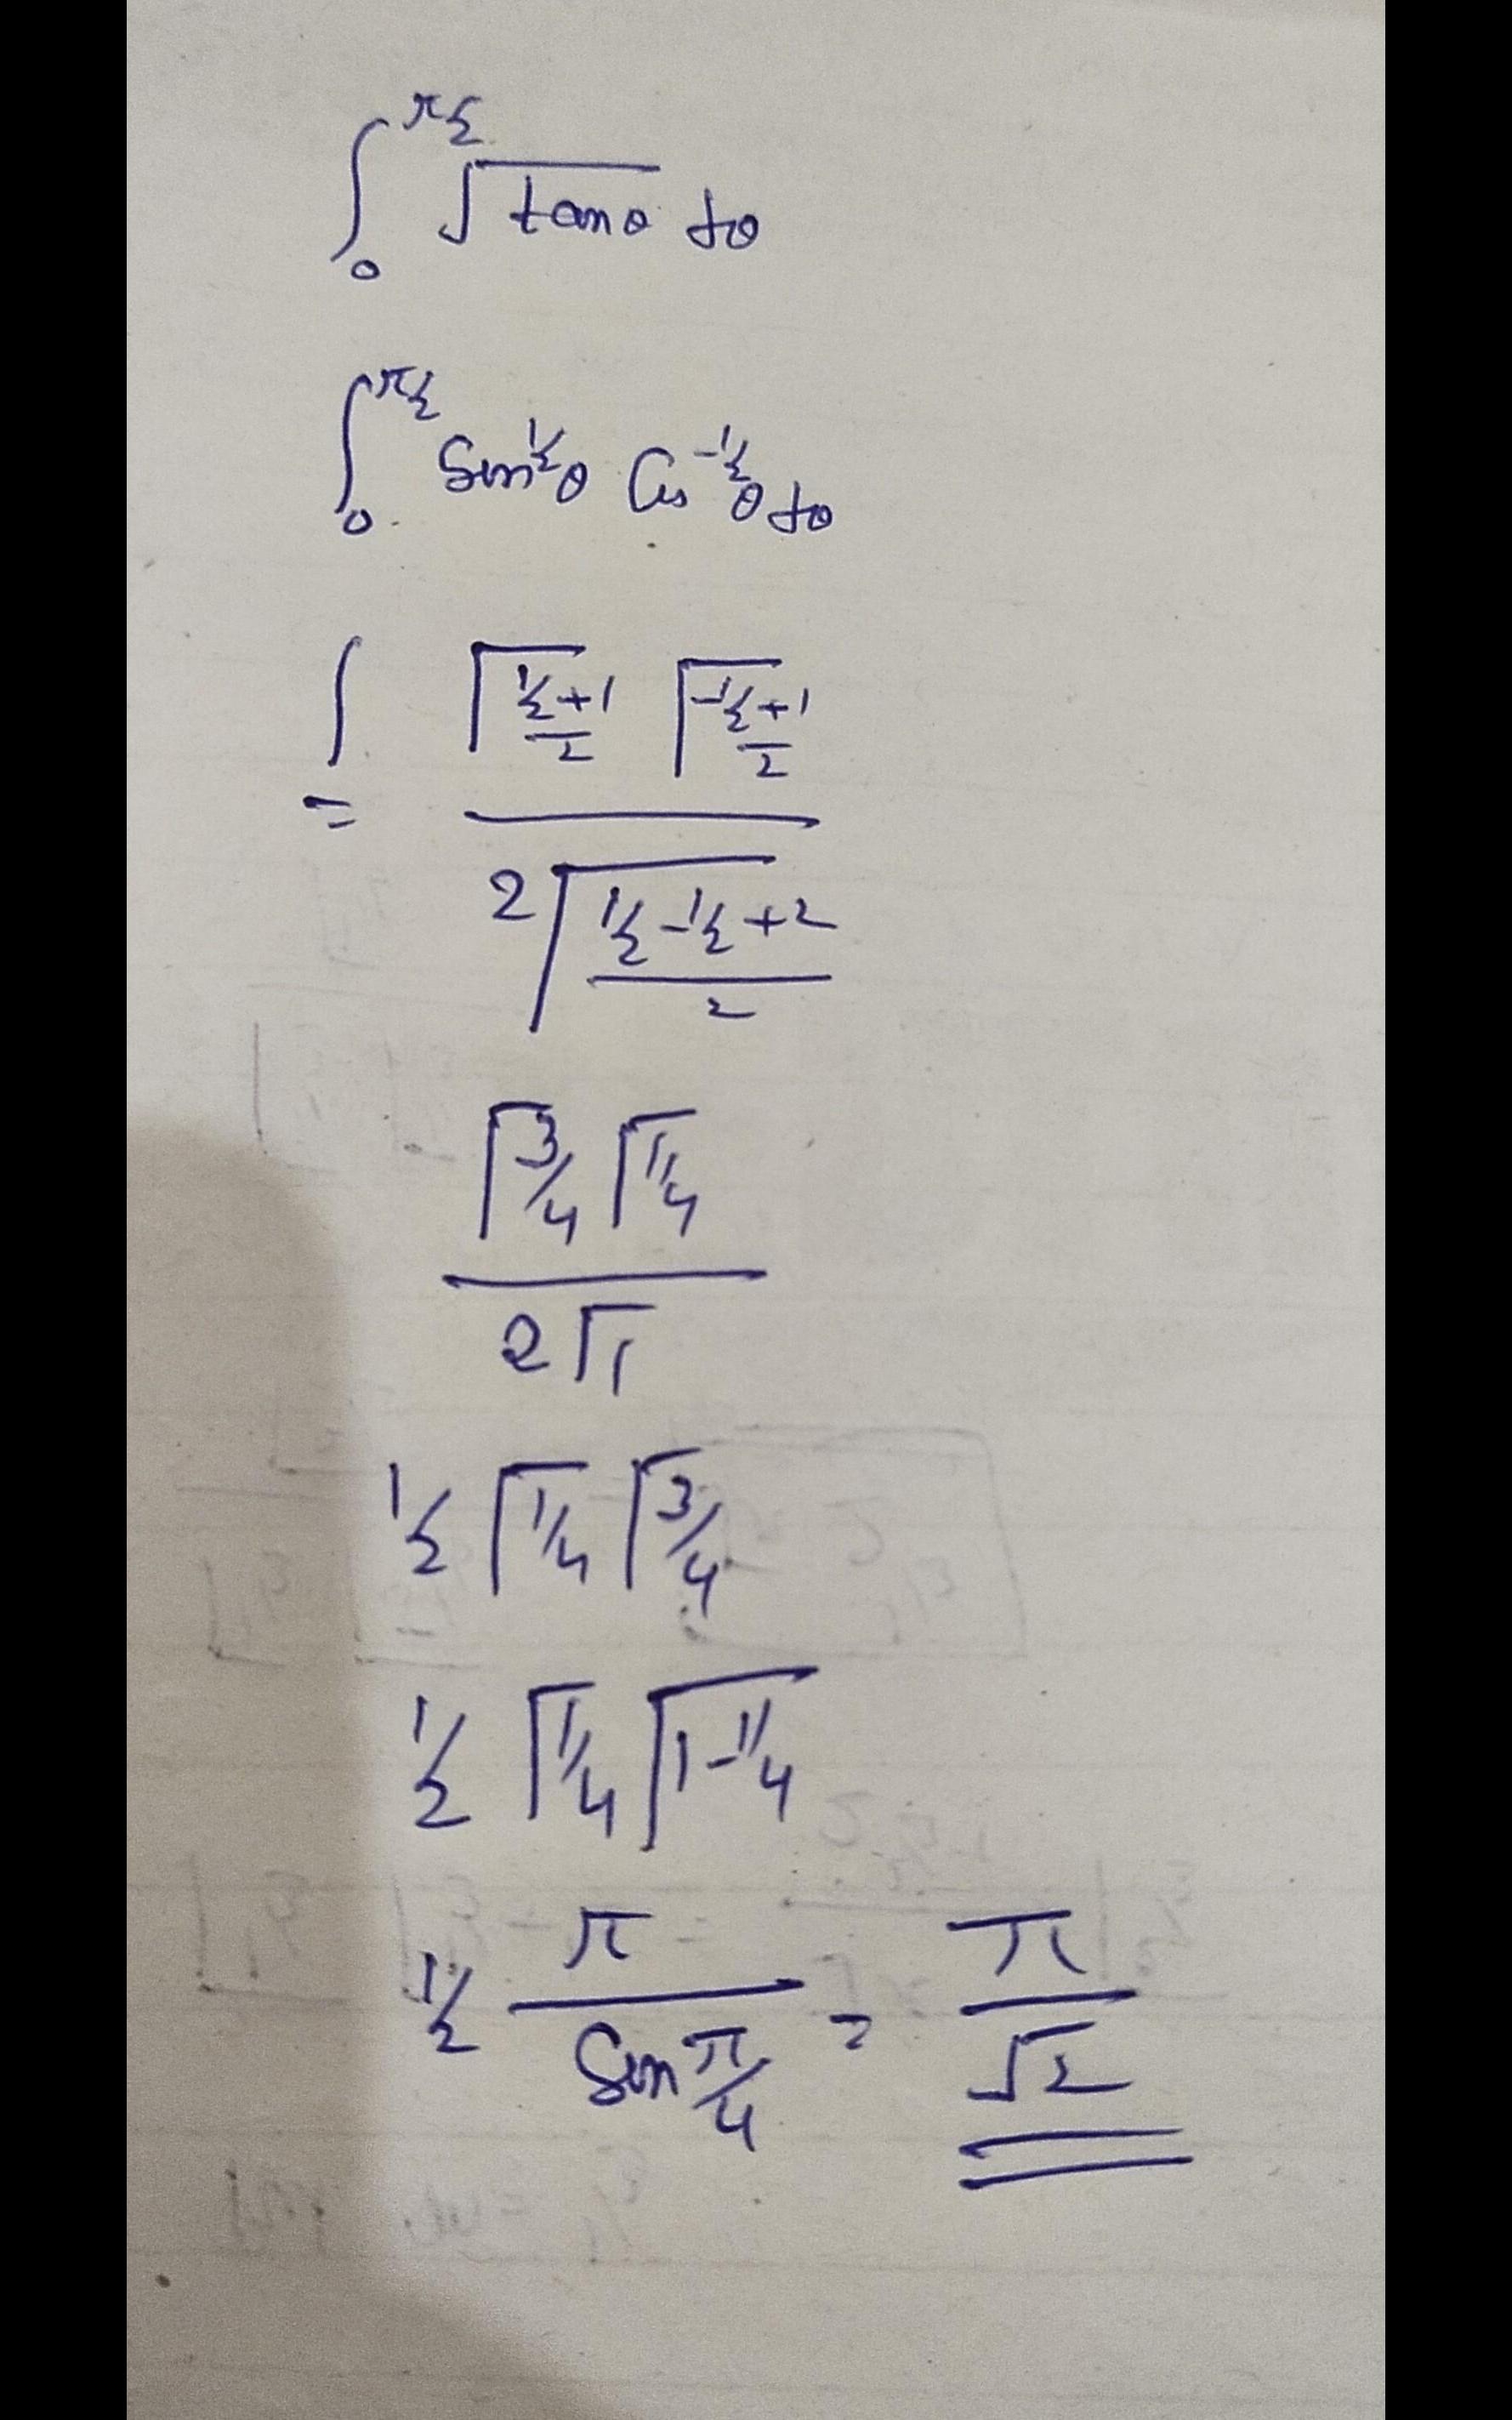 ∫₀^{π/2} √tanθ dθ
∫₀^{π/2} Sin^{1/2}θ Cos^{-1/2}θ dθ
= ∫ Γ((1/2+1)/2) Γ((-1/2+1)/2) / 2Γ((1/2-1/2+2)/2)
Γ(3/4) Γ(1/4) / 2Γ1
1/2 Γ(1/4) Γ(3/4)
1/2 Γ(1/4) Γ(1-1/4)
1/2 π / Sin π/4 = π/√2